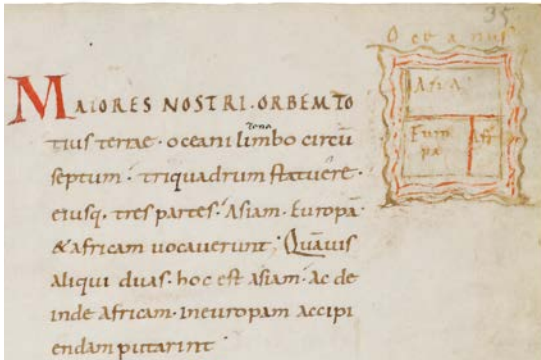 35
Oceanus
Asia
Europa
Aff
MAIORES NOSTRI · ORBEM TO
tius terrae · oceani limbo circū
zona
septum · triquadrum statuere ·
eiusq· tres partes · Asiam · Europā ·
& africam uocauerunt; Quāuis
aliqui duas · hoc est asiam · ac de
inde africam · ineuropam accipi
endam putarint ·